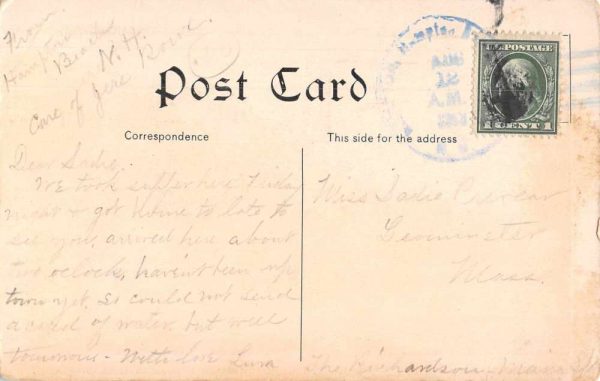 From
Hampton
Beach
N. H.
Care of Jere Rowe.
Post Card
Hampton
AUG
12
A.M.
N. H.
U.S. POSTAGE
1 CENT 1
Correspondence
This side for the address
Dear Sadie,
We took supper here Friday
night & got home to late to
see you, arrived here about
two oclock, haven't been up
town yet. so could not send
a card of water, but will
tomorrow - With love
Miss Sadie
Leominster
Mass.
The Richardson